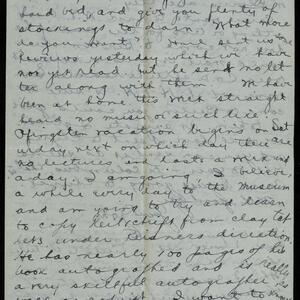 hard bed, and give you plenty of
stockings to darn. What more
do you want, sent us some
reviews yesterday which we have
not yet read, but he sent no let
ter along with them. We have
been at home this week straight
heard no music or such like.
Pfingsten vacation begins on Sat
urday next on which day there are
no lectures and lasts a week and
a day. I am going, I believe,
a while every day to the museum
and am going to try and learn
to copy Keilschrift from clay tab
lets under direction.
He has nearly 100 pages of his
book autographed and is really
a very skillful autographer
I want to